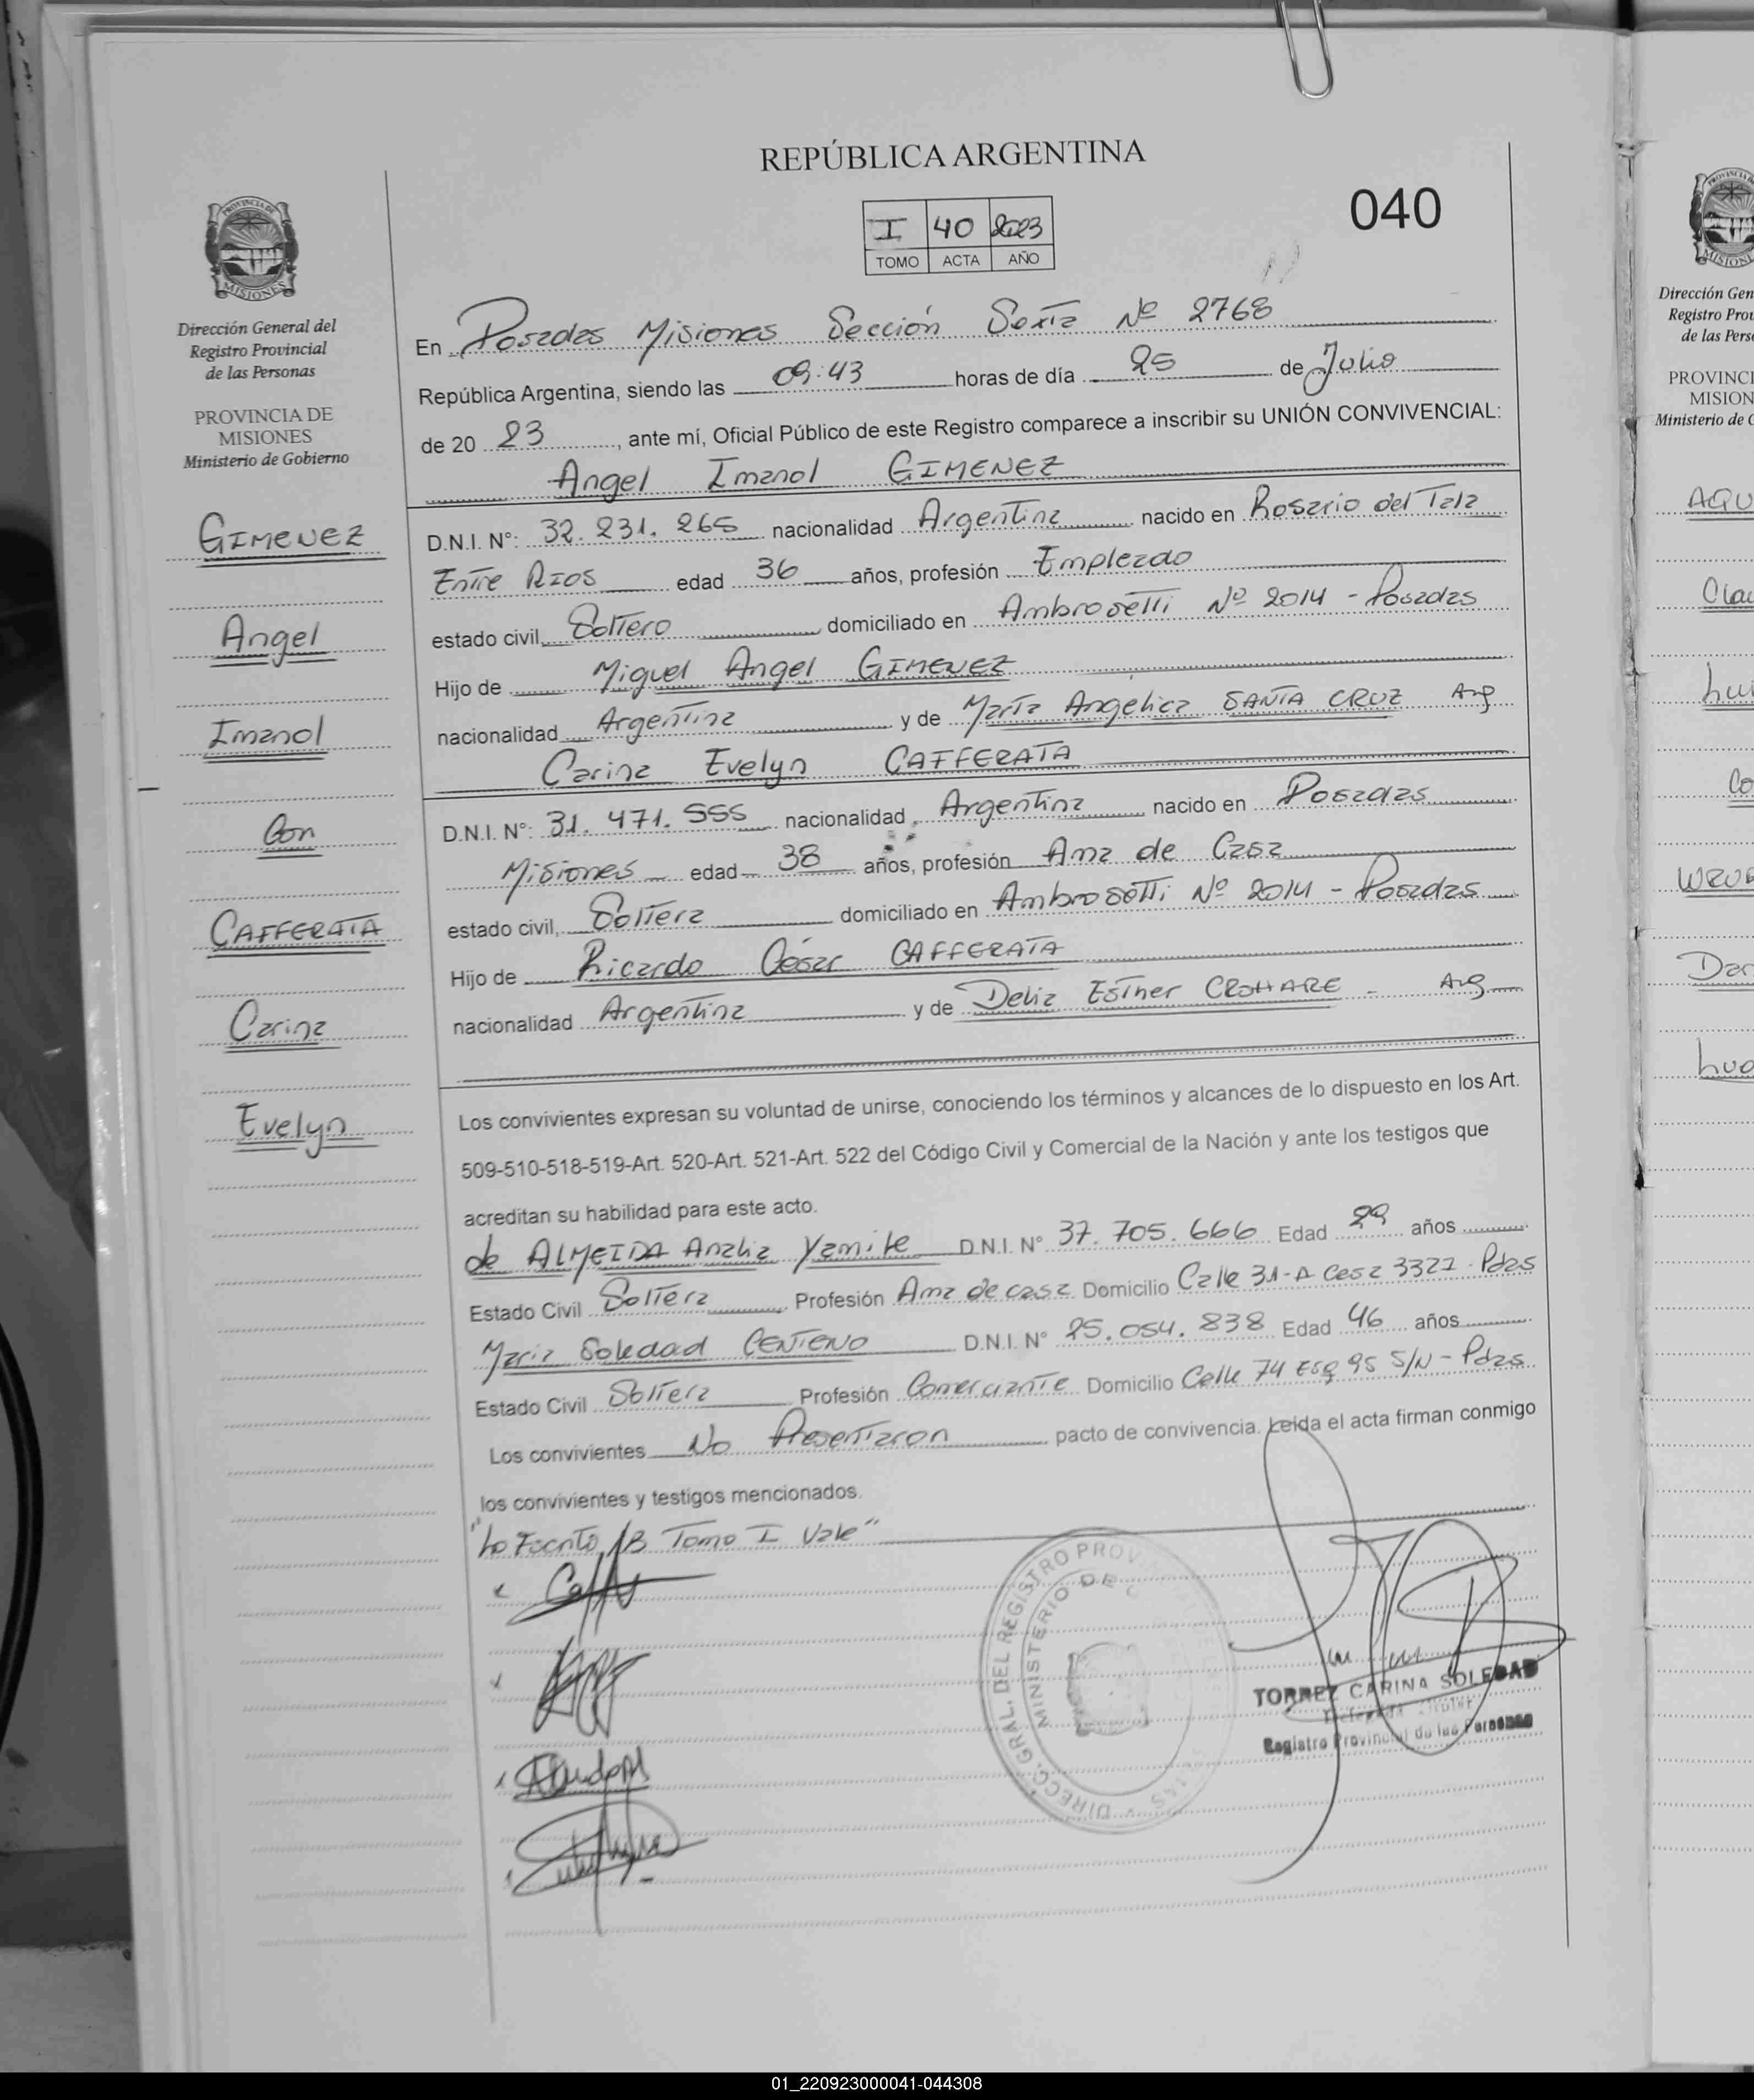 REPÚBLICA ARGENTINA
040
I 40 2023
TOMO ACTA AÑO
PROVINCIA DE MISIONES
Dirección General del
Registro Provincial
de las Personas
PROVINCIA DE
MISIONES
Ministerio de Gobierno
GIMENEZ
Angel
Imanol
Con
CAFFERATA
Carina
Evelyn
En Posadas Misiones Sección Sexta Nº 2768
República Argentina, siendo las 09:43 horas de día 25 de Julio
de 20 23, ante mí, Oficial Público de este Registro comparece a inscribir su UNIÓN CONVIVENCIAL:
Angel Imanol GIMENEZ
D.N.I. N°: 32.231.265 nacionalidad Argentina nacido en Rosario del Tala
Entre Rios edad 36 años, profesión Empleado
estado civil, Soltero domiciliado en Ambrosetti Nº 2014 - Posadas
Hijo de Miguel Angel GIMENEZ
nacionalidad Argentina y de María Angelica SANTA CRUZ Arg
Carina Evelyn CAFFERATA
D.N.I. N°: 31.471.555 nacionalidad Argentina nacido en Posadas
Misiones edad 38 años, profesión Ama de Casa
estado civil, Soltera domiciliado en Ambrosetti Nº 2014 - Posadas
Hijo de Ricardo César CAFFERATA
nacionalidad Argentina y de Delia Esther CROHARE - Arg
Los convivientes expresan su voluntad de unirse, conociendo los términos y alcances de lo dispuesto en los Art.
509-510-518-519-Art. 520-Art. 521-Art. 522 del Código Civil y Comercial de la Nación y ante los testigos que
acreditan su habilidad para este acto.
de ALMEIDA Analia Yamile D.N.I. N° 37.705.666 Edad 29 años
Estado Civil Soltera Profesión Ama de casa Domicilio Calle 31-A Casa 3327 Pdas
Maria Soledad CENTENO D.N.I. N° 25.054.838 Edad 46 años
Estado Civil Soltera Profesión Comerciante Domicilio Calle 74 Esq 95 S/N - Pdas
Los convivientes No Presentaron pacto de convivencia. Leida el acta firman conmigo
los convivientes y testigos mencionados.
"Lo Escrito /B Tomo I Vale"
DIRECC. GRAL. DEL REGISTRO PROV
MINISTERIO DE
TORREZ CARINA SOLEDAD
Registro Provincial de las Personas
Dirección Gen
Registro Prov
de las Perso
PROVINCI
MISION
Ministerio de G
AQU
Clau
Lui
Co
Dar
01_220923000041-044308